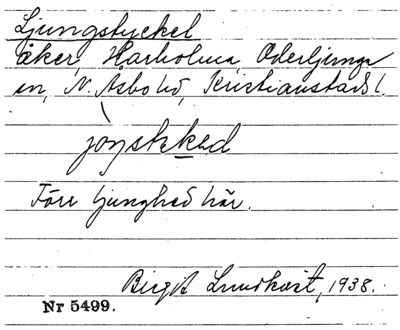 Ljungstyckel
åker, Harholma, Oderljunga
sn, N. Åsbo hd, Kristianstads l.
Förr ljunghed här.
Birgit Lundkvist, 1938.
Nr 5499.